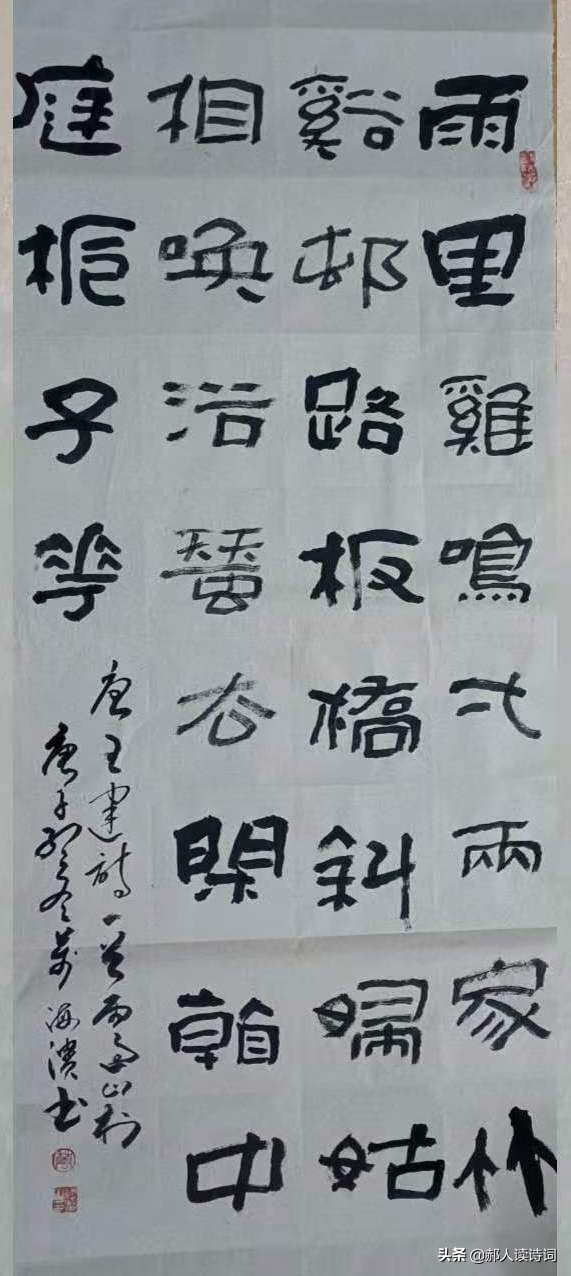 雨里雞鳴弌兩家竹
谿邨路板橋斜婦姑
相喚浴蠶去閑看中
庭栀子花
唐王建詩一首雨過山村
庚子冬海濱书
头条 @郝人读诗词